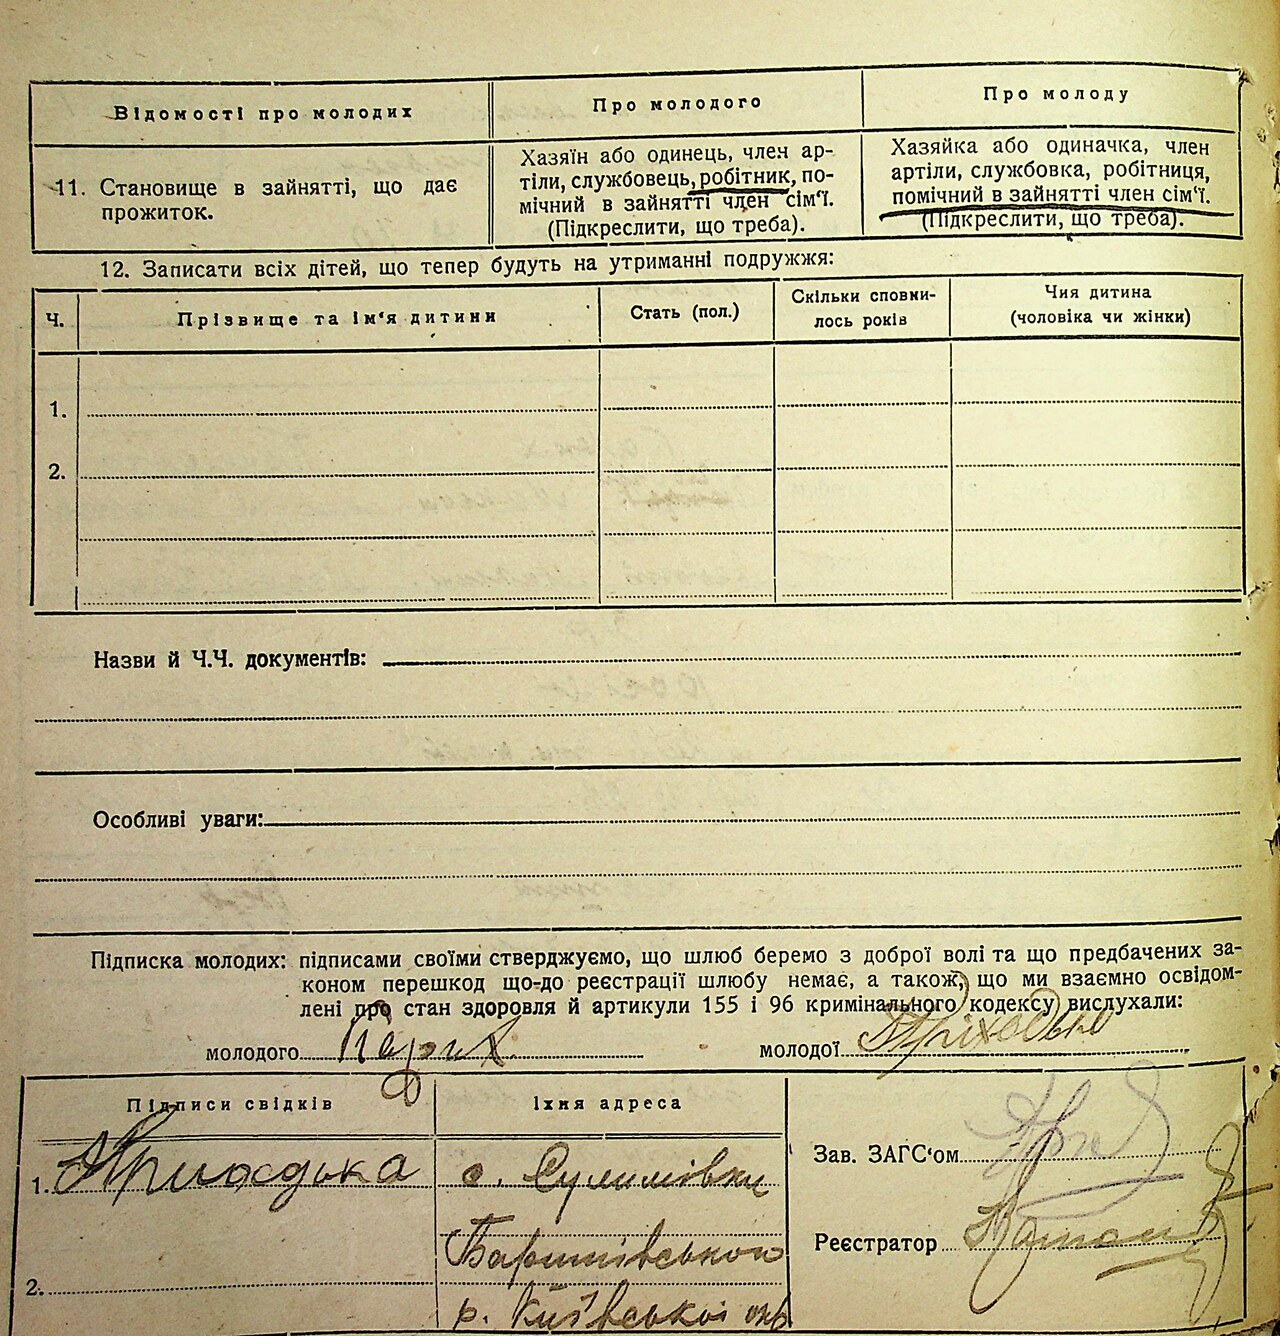 Відомості про молодих
Про молодого
Про молоду
11. Становище в зайнятті, що дає
прожиток.
Хазяїн або одинець, член ар-
тіли, службовець, робітник, по-
мічний в зайнятті член сім'ї.
(Підкреслити, що треба).
Хазяйка або одиначка, член
артіли, службовка, робітниця,
помічний в зайнятті член сім'ї.
(Підкреслити, що треба).
12. Записати всіх дітей, що тепер будуть на утриманні подружжя:
Ч.
Прізвище та ім'я дитини
Стать (пол.)
Скільки сповни-
лось років
Чия дитина
(чоловіка чи жінки)
1.
2.
Назви й Ч.Ч. документів:
Особливі уваги:
Підписка молодих: підписами своїми стверджуємо, що шлюб беремо з доброї волі та що предбачених за-
коном перешкод що-до реєстрації шлюбу немає, а також, що ми взаємно освідом-
лені про стан здоровля й артикули 155 і 96 кримінального кодексу вислухали:
молодого
молодої
Підписи свідків
Їхня адреса
1. Приходька
с. Сулимівки
Баришівського
р. Київської окр
2.
Зав. ЗАГС'ом
Реєстратор